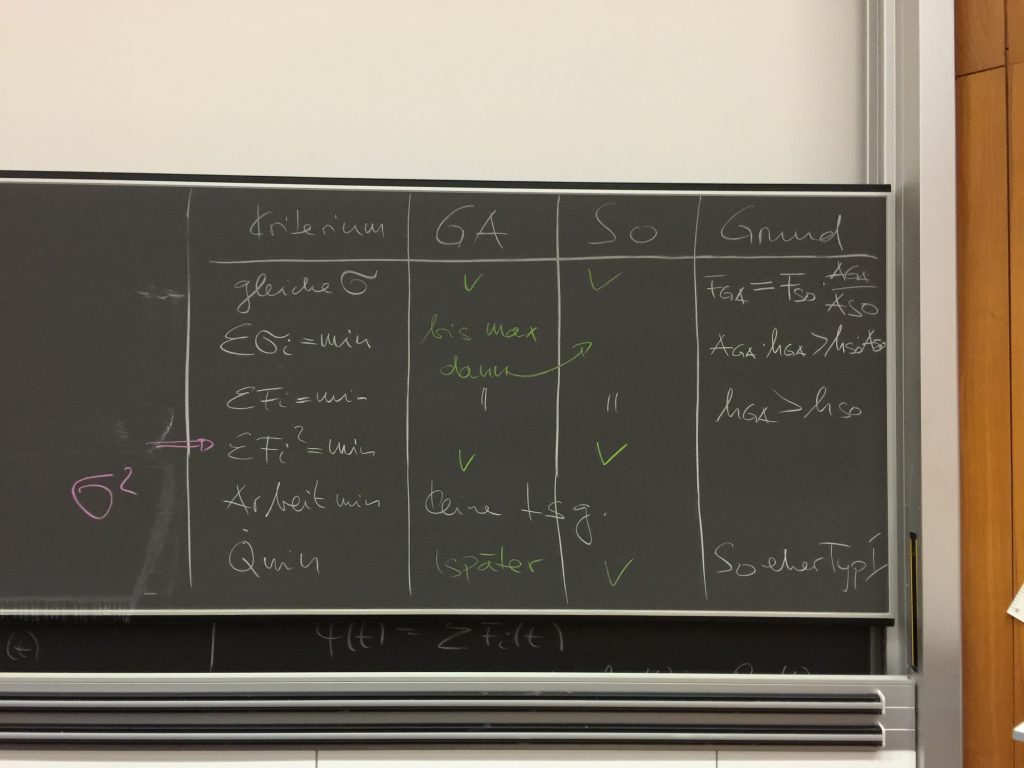 Kriterium GA So Grund
gleiche σ ✓ ✓ F_GA = F_SO · A_GA / A_SO
Σσi = min bis max A_GA · h_GA > h_SO A_SO
dann
ΣFi = min || || h_GA > h_SO
ΣFi² = min ✓ ✓
σ²
Arbeit min keine Lsg.
Q̇ min (später ✓ So eher Typ I
(t) Ψ(t) = ΣFi(t)